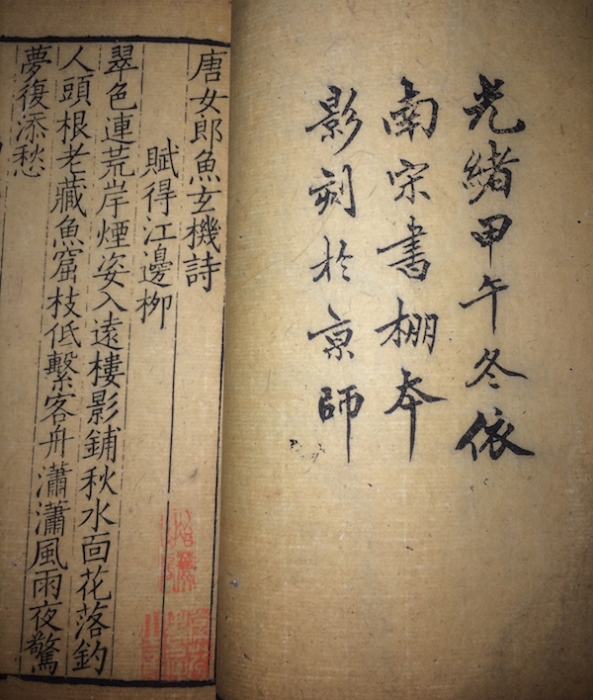 光緒甲午冬依
南宋書棚本
影刻於京師
唐女郎魚玄機詩
賦得江邊柳
翠色連荒岸煙姿入遠樓影鋪秋水面花落釣
人頭根老藏魚窟枝低繫客舟瀟瀟風雨夜驚
夢復添愁